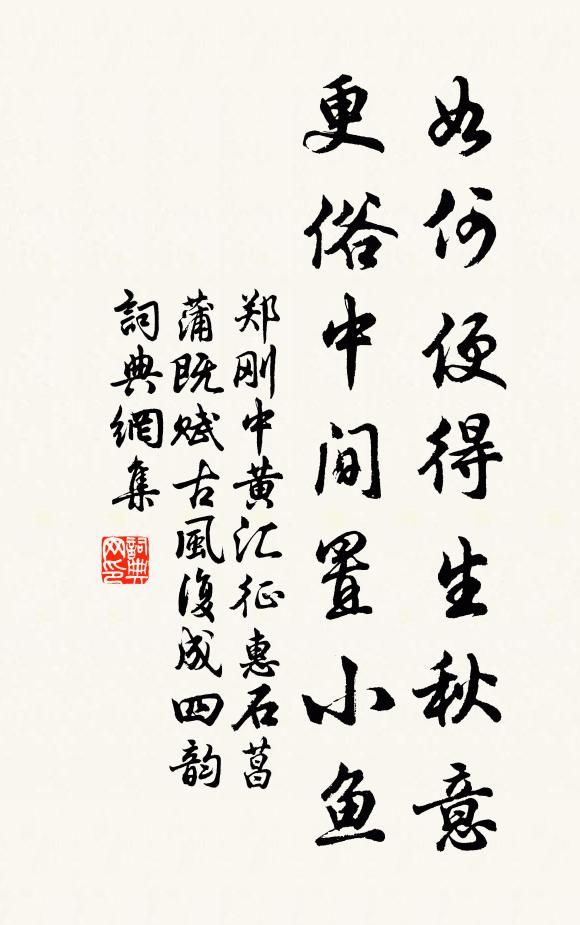 如何便得生秋意
更俗中间置小鱼
郑刚中黄汇征惠石菖
蒲既赋古風復成四韵
詞典網集
詞典
网印